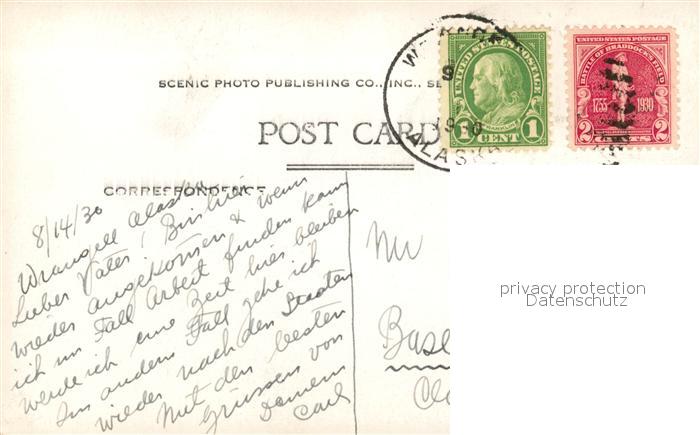 SCENIC PHOTO PUBLISHING CO., INC., SE
POST CARD
CORRESPONDENCE
UNITED STATES POSTAGE
FRANKLIN
1 CENT 1
UNITED STATES POSTAGE
BATTLE OF BRADDOCK'S FIELD
1755 1930
2 CENTS 2
ALASKA
8/14/30
Wrangell Alaska
Lieber Vater! Bin hier
wieder angekommen & wenn
ich im Fall Arbeit finden kann
werde ich eine Zeit hier bleiben
Im andern Fall gehe ich
wieder nach den Staaten
Mit den besten
Grüssen von
Deinem
Carl
Mr
Base
privacy protection
Datenschutz